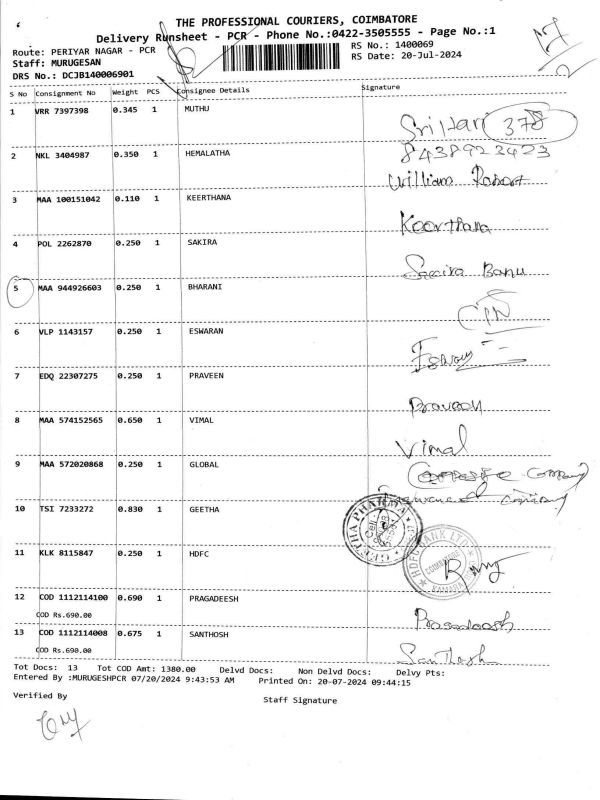 THE PROFESSIONAL COURIERS, COIMBATORE
Delivery Runsheet - PCR - Phone No.:0422-3505555 - Page No.:1
Route: PERIYAR NAGAR - PCR RS No.: 1400069
Staff: MURUGESAN RS Date: 20-Jul-2024
DRS No.: DCJB140006901
S No Consignment No Weight PCS Consignee Details Signature
1 VRR 7397398 0.345 1 MUTHU
Sri Hari 378
2 NKL 3404987 0.350 1 HEMALATHA 8438922423
William Robert
3 MAA 100151042 0.110 1 KEERTHANA
Keerthana
4 POL 2262870 0.250 1 SAKIRA
Sacira Banu
5 MAA 944926603 0.250 1 BHARANI
6 VLP 1143157 0.250 1 ESWARAN
7 EDQ 22307275 0.250 1 PRAVEEN
Praveen
8 MAA 574152565 0.650 1 VIMAL
Vimal
9 MAA 572020868 0.250 1 GLOBAL
company
10 TSI 7233272 0.830 1 GEETHA
GEETHA PHARMA
11 KLK 8115847 0.250 1 HDFC
HDFC BANK LTD
COIMBATORE
12 COD 1112114100 0.690 1 PRAGADEESH
COD Rs.690.00
Pragadeesh
13 COD 1112114008 0.675 1 SANTHOSH
COD Rs.690.00
Santhosh
Tot Docs: 13 Tot COD Amt: 1380.00 Delvd Docs: Non Delvd Docs: Delvy Pts:
Entered By :MURUGESHPCR 07/20/2024 9:43:53 AM Printed On: 20-07-2024 09:44:15
Verified By Staff Signature